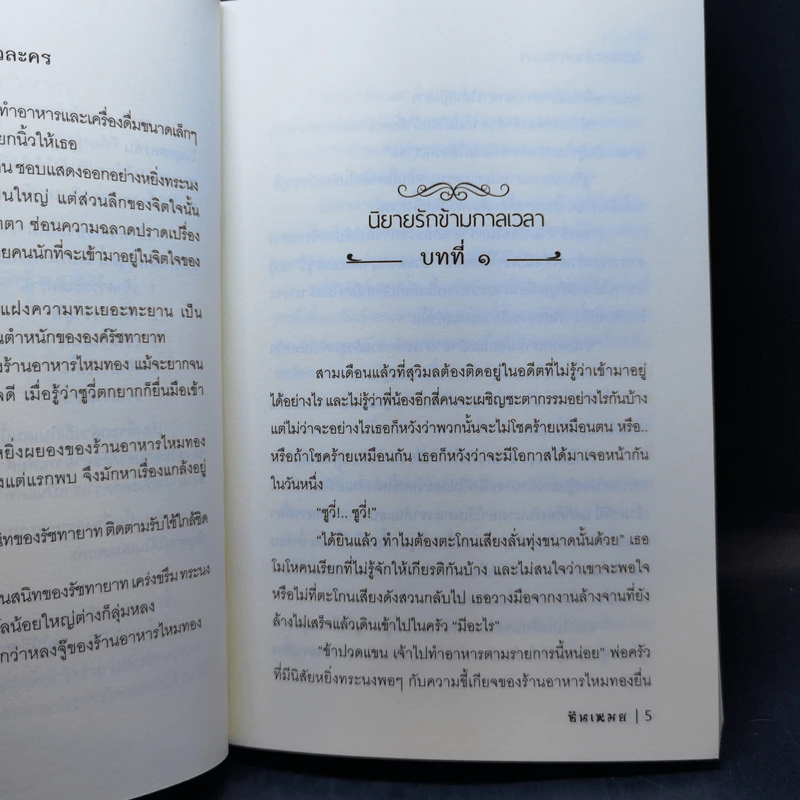 วละคร
ทำอาหารและเครื่องดื่มขนาดเล็กๆ
ยกนิ้วให้เธอ
น ชอบแสดงออกอย่างหยิ่งทระนง
นใหญ่ แต่ส่วนลึกของจิตใจนั้น
ตา ซ่อนความฉลาดปราดเปรื่อง
ยคนนักที่จะเข้ามาอยู่ในจิตใจของ
แฝงความทะเยอะทะยาน เป็น
นตำหนักขององค์รัชทายาท
งร้านอาหารไหมทอง แม้จะยากจน
จดี เมื่อรู้ว่าซูวี่ตกยากก็ยื่นมือเข้า
หยิ่งผยองของร้านอาหารไหมทอง
งแต่แรกพบ จึงมักหาเรื่องแกล้งอยู่
นิทของรัชทายาท ติดตามรับใช้ใกล้ชิด
นสนิทของรัชทายาท เคร่งขรึม ทระนง
ัลน้อยใหญ่ต่างก็ลุ่มหลง
กว่าหลงจู๊ของร้านอาหารไหมทอง
นิยายรักข้ามกาลเวลา
บทที่ ๑
สามเดือนแล้วที่สุวิมลต้องติดอยู่ในอดีตที่ไม่รู้ว่าเข้ามาอยู่
ได้อย่างไร และไม่รู้ว่าพี่น้องอีกสี่คนจะเผชิญชะตากรรมอย่างไรกันบ้าง
แต่ไม่ว่าจะอย่างไรเธอก็หวังว่าพวกนั้นจะไม่โชคร้ายเหมือนตน หรือ..
หรือถ้าโชคร้ายเหมือนกัน เธอก็หวังว่าจะมีโอกาสได้มาเจอหน้ากัน
ในวันหนึ่ง
“ซูวี่!.. ซูวี่!”
“ได้ยินแล้ว ทำไมต้องตะโกนเสียงลั่นทุ่งขนาดนั้นด้วย” เธอ
โมโหคนเรียกที่ไม่รู้จักให้เกียรติกันบ้าง และไม่สนใจว่าเขาจะพอใจ
หรือไม่ที่ตะโกนเสียงดังสวนกลับไป เธอวางมือจากงานล้างจานที่ยัง
ล้างไม่เสร็จแล้วเดินเข้าไปในครัว “มีอะไร”
“ข้าปวดแขน เจ้าไปทำอาหารตามรายการนี้หน่อย” พ่อครัว
ที่มีนิสัยหยิ่งทระนงพอๆ กับความขี้เกียจของร้านอาหารไหมทองยื่น
หินเหมย | 5